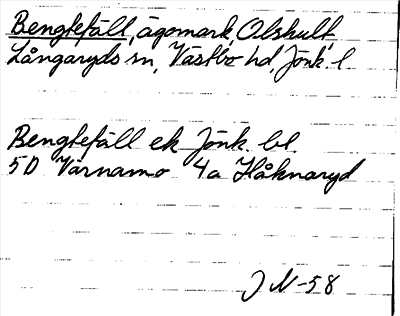 Bengtefäll, ägomark, Olshult,
Långaryds sn, Västbo hd, Jönk. l
Bengtefäll ek Jönk. bl.
5D Värnamo 4a Håknaryd
J M-58